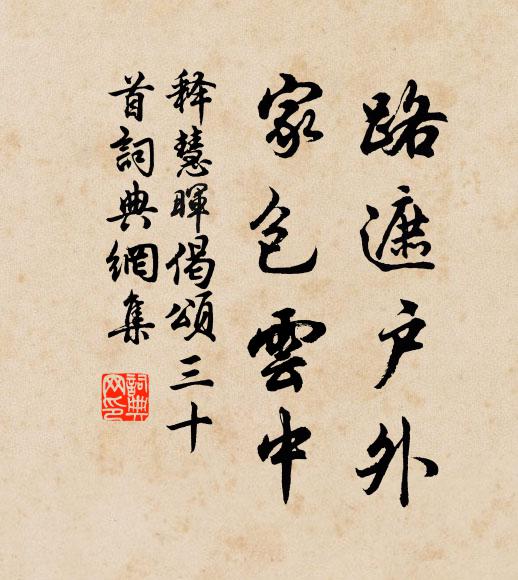 路遮户外
家包雲中
释慧暉偈頌三十
首詞典網集
詞典
网印